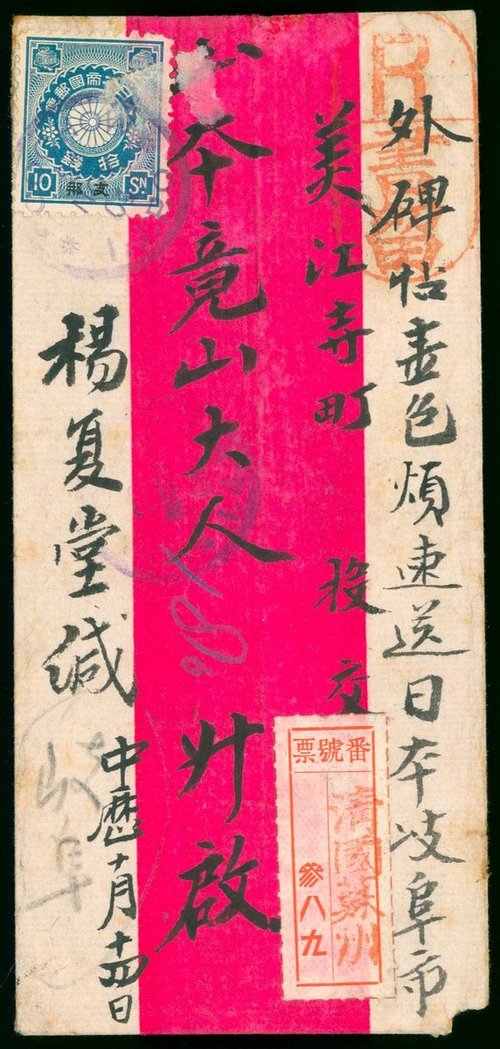 R
書留
外碑帖壹包煩速送日本岐阜市
美江寺町 投交
山本竟山大人 升啟
楊夏堂緘
中歷十月十四日
岐阜
番號票
清國蘇州
參八九
拾錢
10 SN
支那